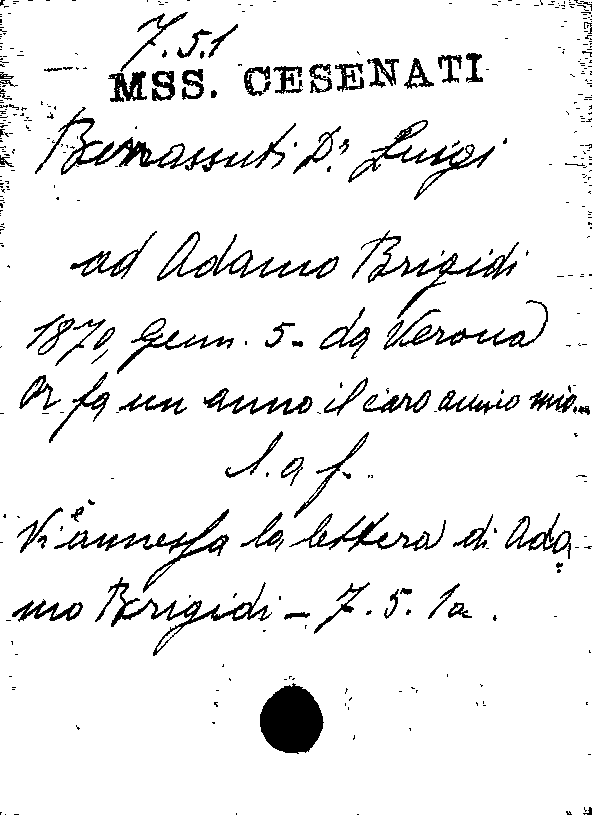 7.5.1
MSS. CESENATI
Benassuti Dr. Luigi
ad Adamo Brigidi
1870, Genn. 5 - da Verona
Or fa un anno il caro amico mio...
l. a f.
Vi è annessa la lettera di Ada
mo Brigidi - 7.5.1a.